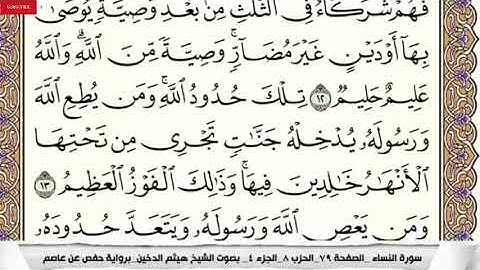 SUBSCRIBE
فَهُمْ شُرَكَآءُ فِى ٱلثُّلُثِ مِنۢ بَعْدِ وَصِيَّةٍ يُوصَىٰ
بِهَآ أَوْ دَيْنٍ غَيْرَ مُضَآرٍّ وَصِيَّةً مِّنَ ٱللَّهِ وَٱللَّهُ
عَلِيمٌ حَلِيمٌ ١٢ تِلْكَ حُدُودُ ٱللَّهِ وَمَن يُطِعِ ٱللَّهَ
وَرَسُولَهُۥ يُدْخِلْهُ جَنَّٰتٍ تَجْرِى مِن تَحْتِهَا
ٱلْأَنْهَٰرُ خَٰلِدِينَ فِيهَا وَذَٰلِكَ ٱلْفَوْزُ ٱلْعَظِيمُ ١٣
وَمَن يَعْصِ ٱللَّهَ وَرَسُولَهُۥ وَيَتَعَدَّ حُدُودَهُۥ
سورة النساء _الصفحة ٧٩_الحزب ٨_الجزء ٤_ بصوت الشيخ هيثم الدخين_برواية حفص عن عاصم